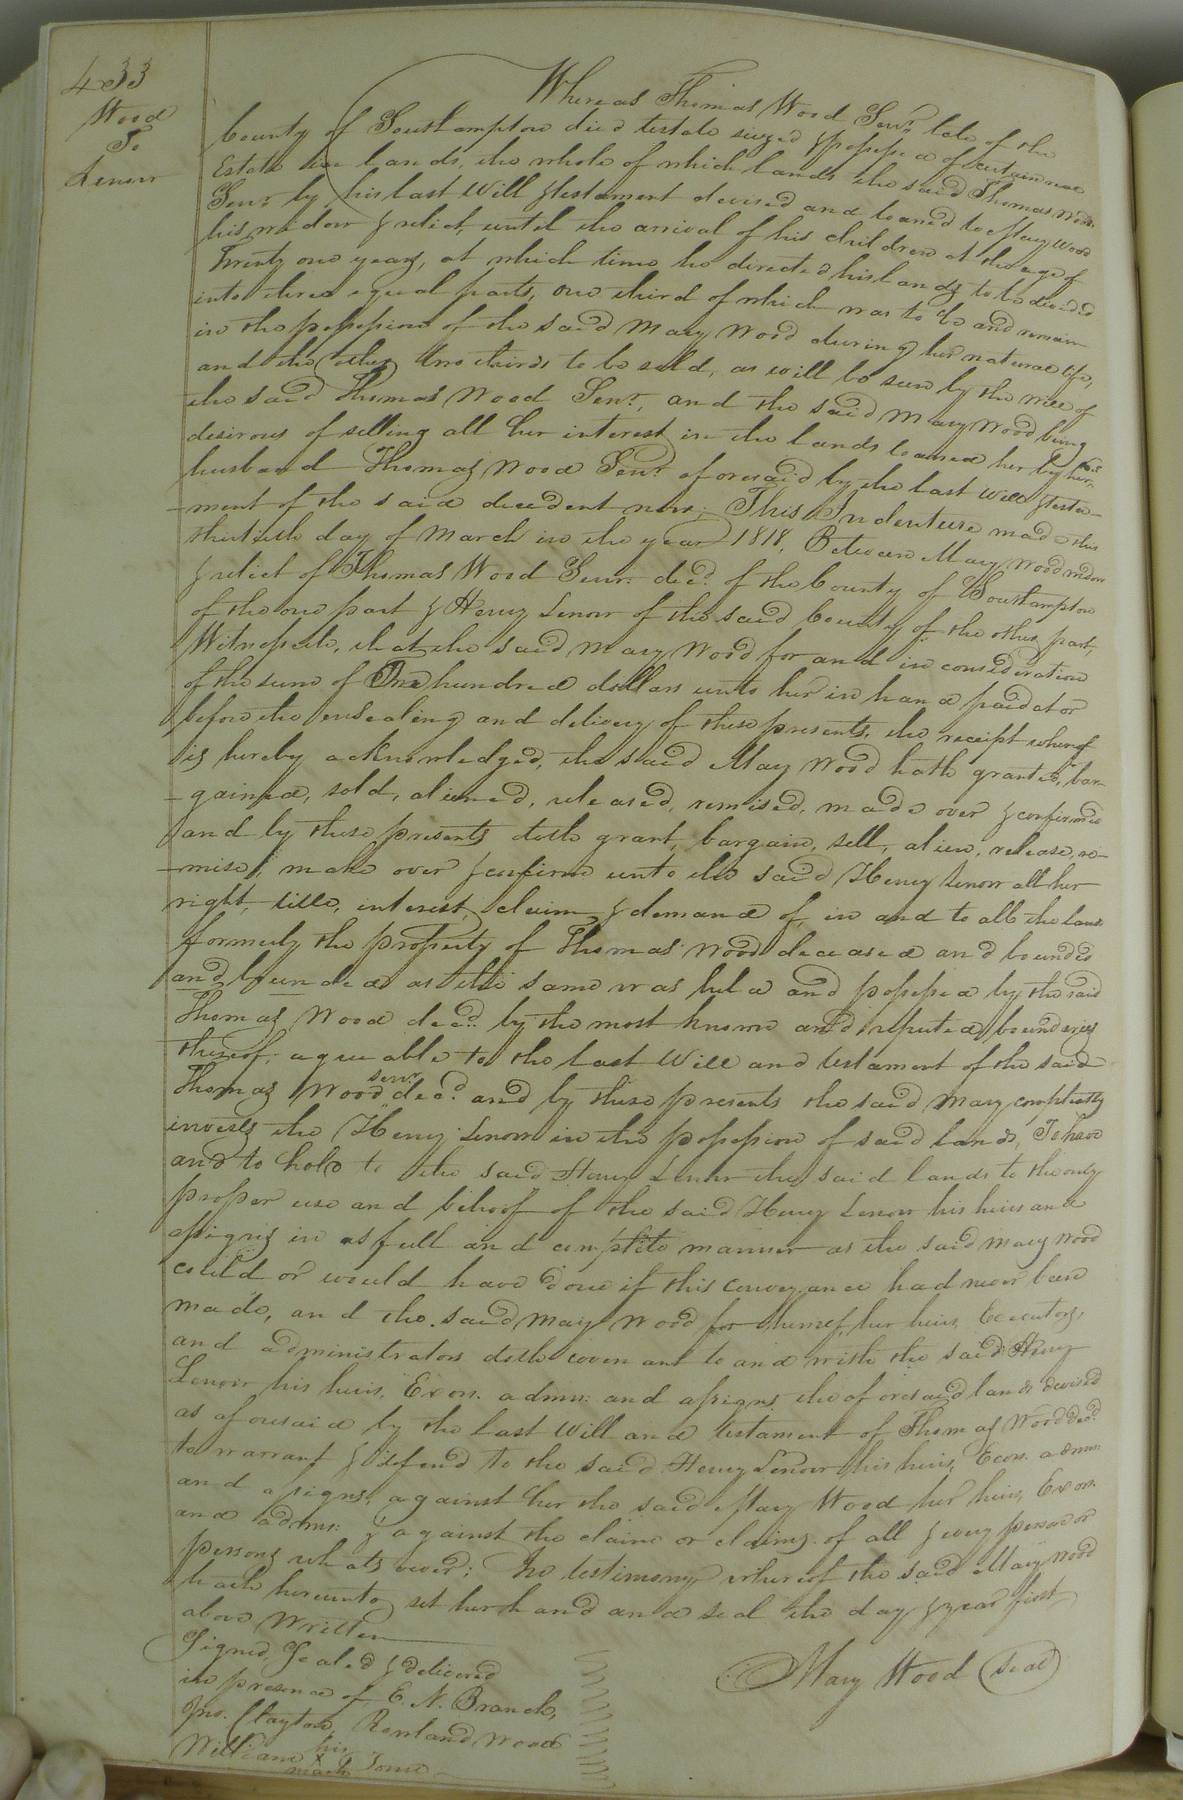 433
Wood
To
Lenow
Whereas Thomas Wood Senr. late of the
County of Southampton died testate siezed & possessed of certain real
Estate in lands, the whole of which lands the said Thomas Wood
Senr. by his last Will & testament devised and loaned to Mary Wood
his widow & relict, until the arrival of his children at the age of
Twenty one years, at which time he directed his lands to be divided
into three equal parts, one third of which was to be and remain
in the possession of the said Mary Wood during her natural life,
and the other two thirds to be sold, as will be seen by the will of
the said Thomas Wood Senr., and the said Mary Wood being
desirous of selling all her interest in the lands loaned her by her
husband Thomas Wood Senr. aforesaid by the last Will & testa-
-ment of the said decedent now; This Indenture made this
thirtieth day of March in the year 1818, Between Mary Wood widow
& relict of Thomas Wood Senr. decd. of the County of Southampton
of the one part & Henry Lenow of the said County of the other part,
Witnesseth, that the said Mary Wood for and in consideration
of the sum of One hundred dollars unto her in hand paid at or
before the ensealing and delivery of these presents, the receipt whereof
is hereby acknowledged, the said Mary Wood hath granted, bar-
-gained, sold, aliened, released, remised, made over & confirmed
and by these presents doth grant, bargain, sell, alien, release, re-
-mise, make over & confirm unto the said Henry Lenow all her
right, title, interest, claim & demand of, in and to all the land
formerly the property of Thomas Wood deceased and bounded
and bounded as the same was held and possessed by the said
Thomas Wood decd. by the most known and reputed boundaries
thereof: agreeable to the last Will and testament of the said
Thomas Wood senr. decd. and by these presents the said Mary completely
invests the Henry Lenow in the possession of said lands, To have
and to hold to the said Henry Lenow the said lands to the only
proper use and behoof of the said Henry Lenow his heirs and
assigns in as full and complete manner as the said Mary Wood
could or would have done if this conveyance had never been
made, and the said Mary Wood for herself, her heirs, Executors,
and administrators doth covenant to and with the said Henry
Lenow his heirs, Exors. admrs: and assigns the aforesaid lands devised
as aforesaid by the last Will and testament of Thomas Wood decd.
to warrant & defend to the said Henry Lenow his heirs, Exors. admrs:
and assigns, against her the said Mary Wood her heirs, Exors.
and admrs: & against the claim or claims of all & every person or
persons whatsoever; In testimony whereof the said Mary Wood
hath hereunto set her hand and seal the day & year first
above Written
Signed, Sealed & delivered
in presence of E. N. Branch,
Jno. Clayton, Rowland Wood
William his X mark
Mary Wood (seal)